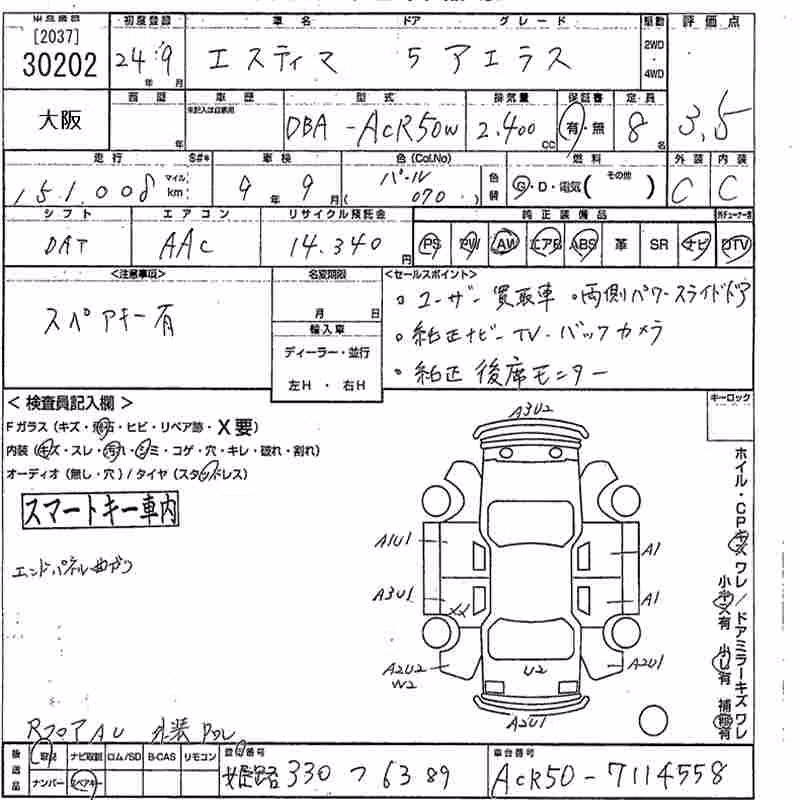 [2037]
30202
大阪
初度登録 車名 ドア グレード 駆動 評価点
24年9月 エスティマ 5 アエラス 2WD・4WD 3.5
西暦 車歴 型式 排気量 保証書 定員
年 DBA-ACR50W 2.400cc 有・無 8名
走行 S#* 車検 色(Col.No) 燃料 外装 内装
151.008 マイル km 9年9月 パール (070) 色替 G・D・電気 (その他) C C
シフト エアコン リサイクル預託金 純正装備品
DAT AAC 14.340円 PS PW AW エアB ABS 革 SR ナビ DTV
<注意事項> 名変期限 <セールスポイント>
スペアキー有
月 日
輸入車
ディーラー・並行
左H・右H
・ユーザー買取車 ・両側パワースライドドア
・純正ナビーTV・バックカメラ
・純正後席モニター
<検査員記入欄>
キーロック
Fガラス (キズ・飛石・ヒビ・リペア跡・X要)
内装 (キズ・スレ・汚れ・シミ・コゲ・穴・キレ・破れ・割れ)
オーディオ (無し・穴) / タイヤ (スタッドレス)
スマートキー車内
エンドパネル曲がり
A3U2
A1U1 A1
A3U1 XX A1
A2U2 W2 U2 A2U1
A2U1
ホイル・CPキズワレ/ドアミラーキズワレ
小キズ有 小U有 補修有
RフロアAU
後送品 取説 ナビ取説 ロム/SD B-CAS リモコン 登録番号 車台番号
ナンバー スペアキー 姫路 330 つ 6389 ACR50-7114558